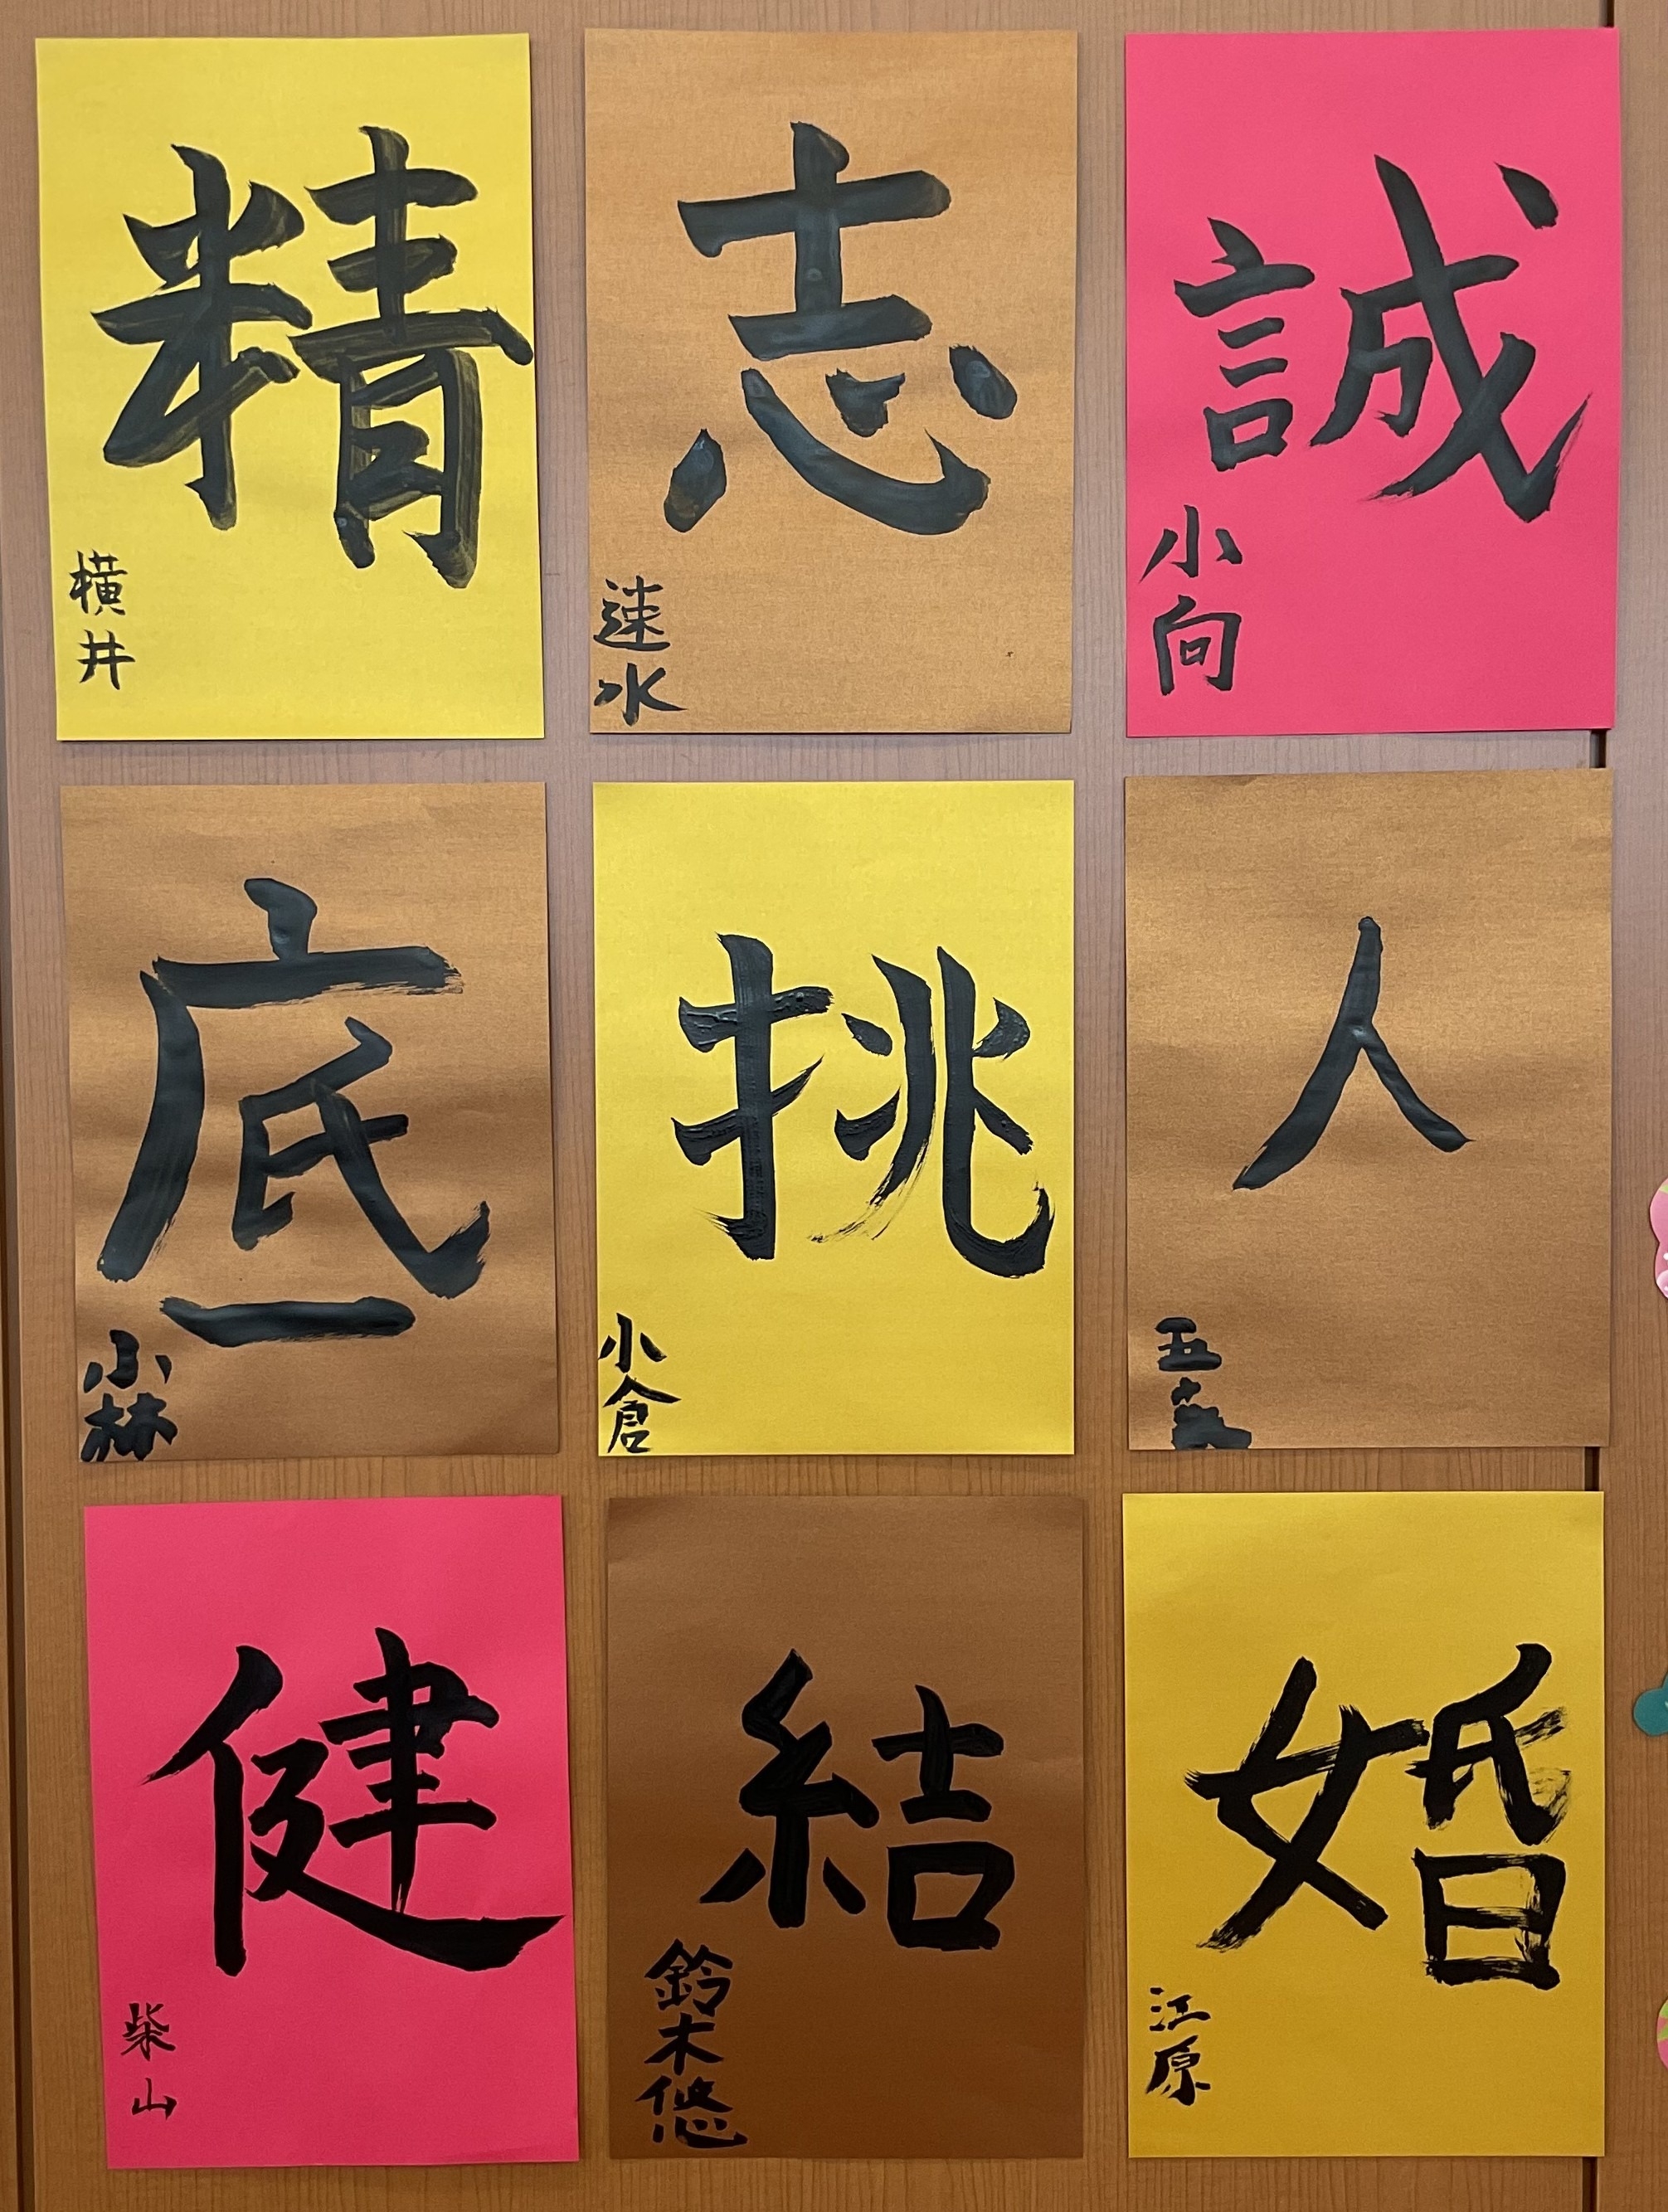 精
横井
志
速水
誠
小向
底
小林
挑
小倉
人
健
柴山
結
鈴木悠
婚
江原